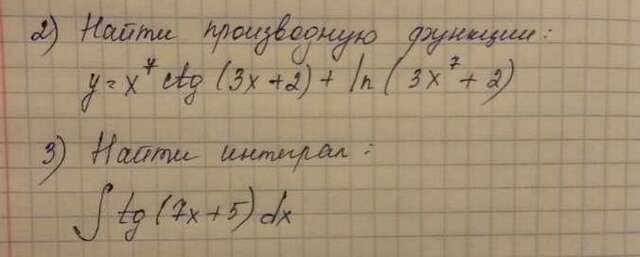 2) Найти производную функции:
y = x⁷ ctg (3x + 2) + ln (3x⁷ + 2)
3) Найти интеграл:
∫ tg (7x + 5) dx